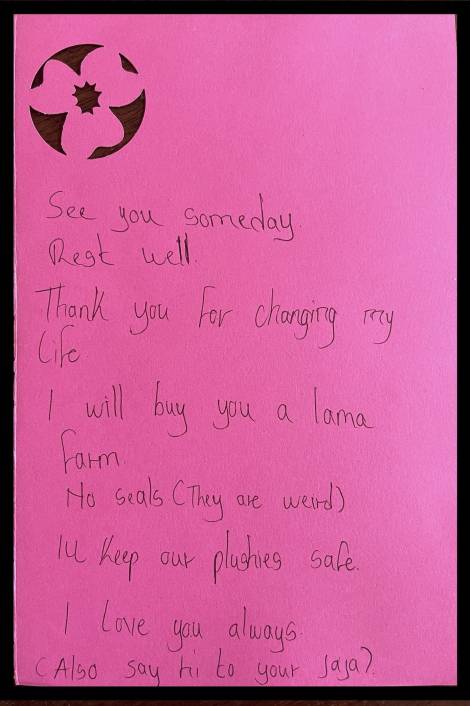 See you someday.
Rest well.
Thank you for changing my
life
I will buy you a lama
farm.
No seals (They are weird)
I'll keep our plushies safe.
I love you always.
(Also say hi to your Jaja?)